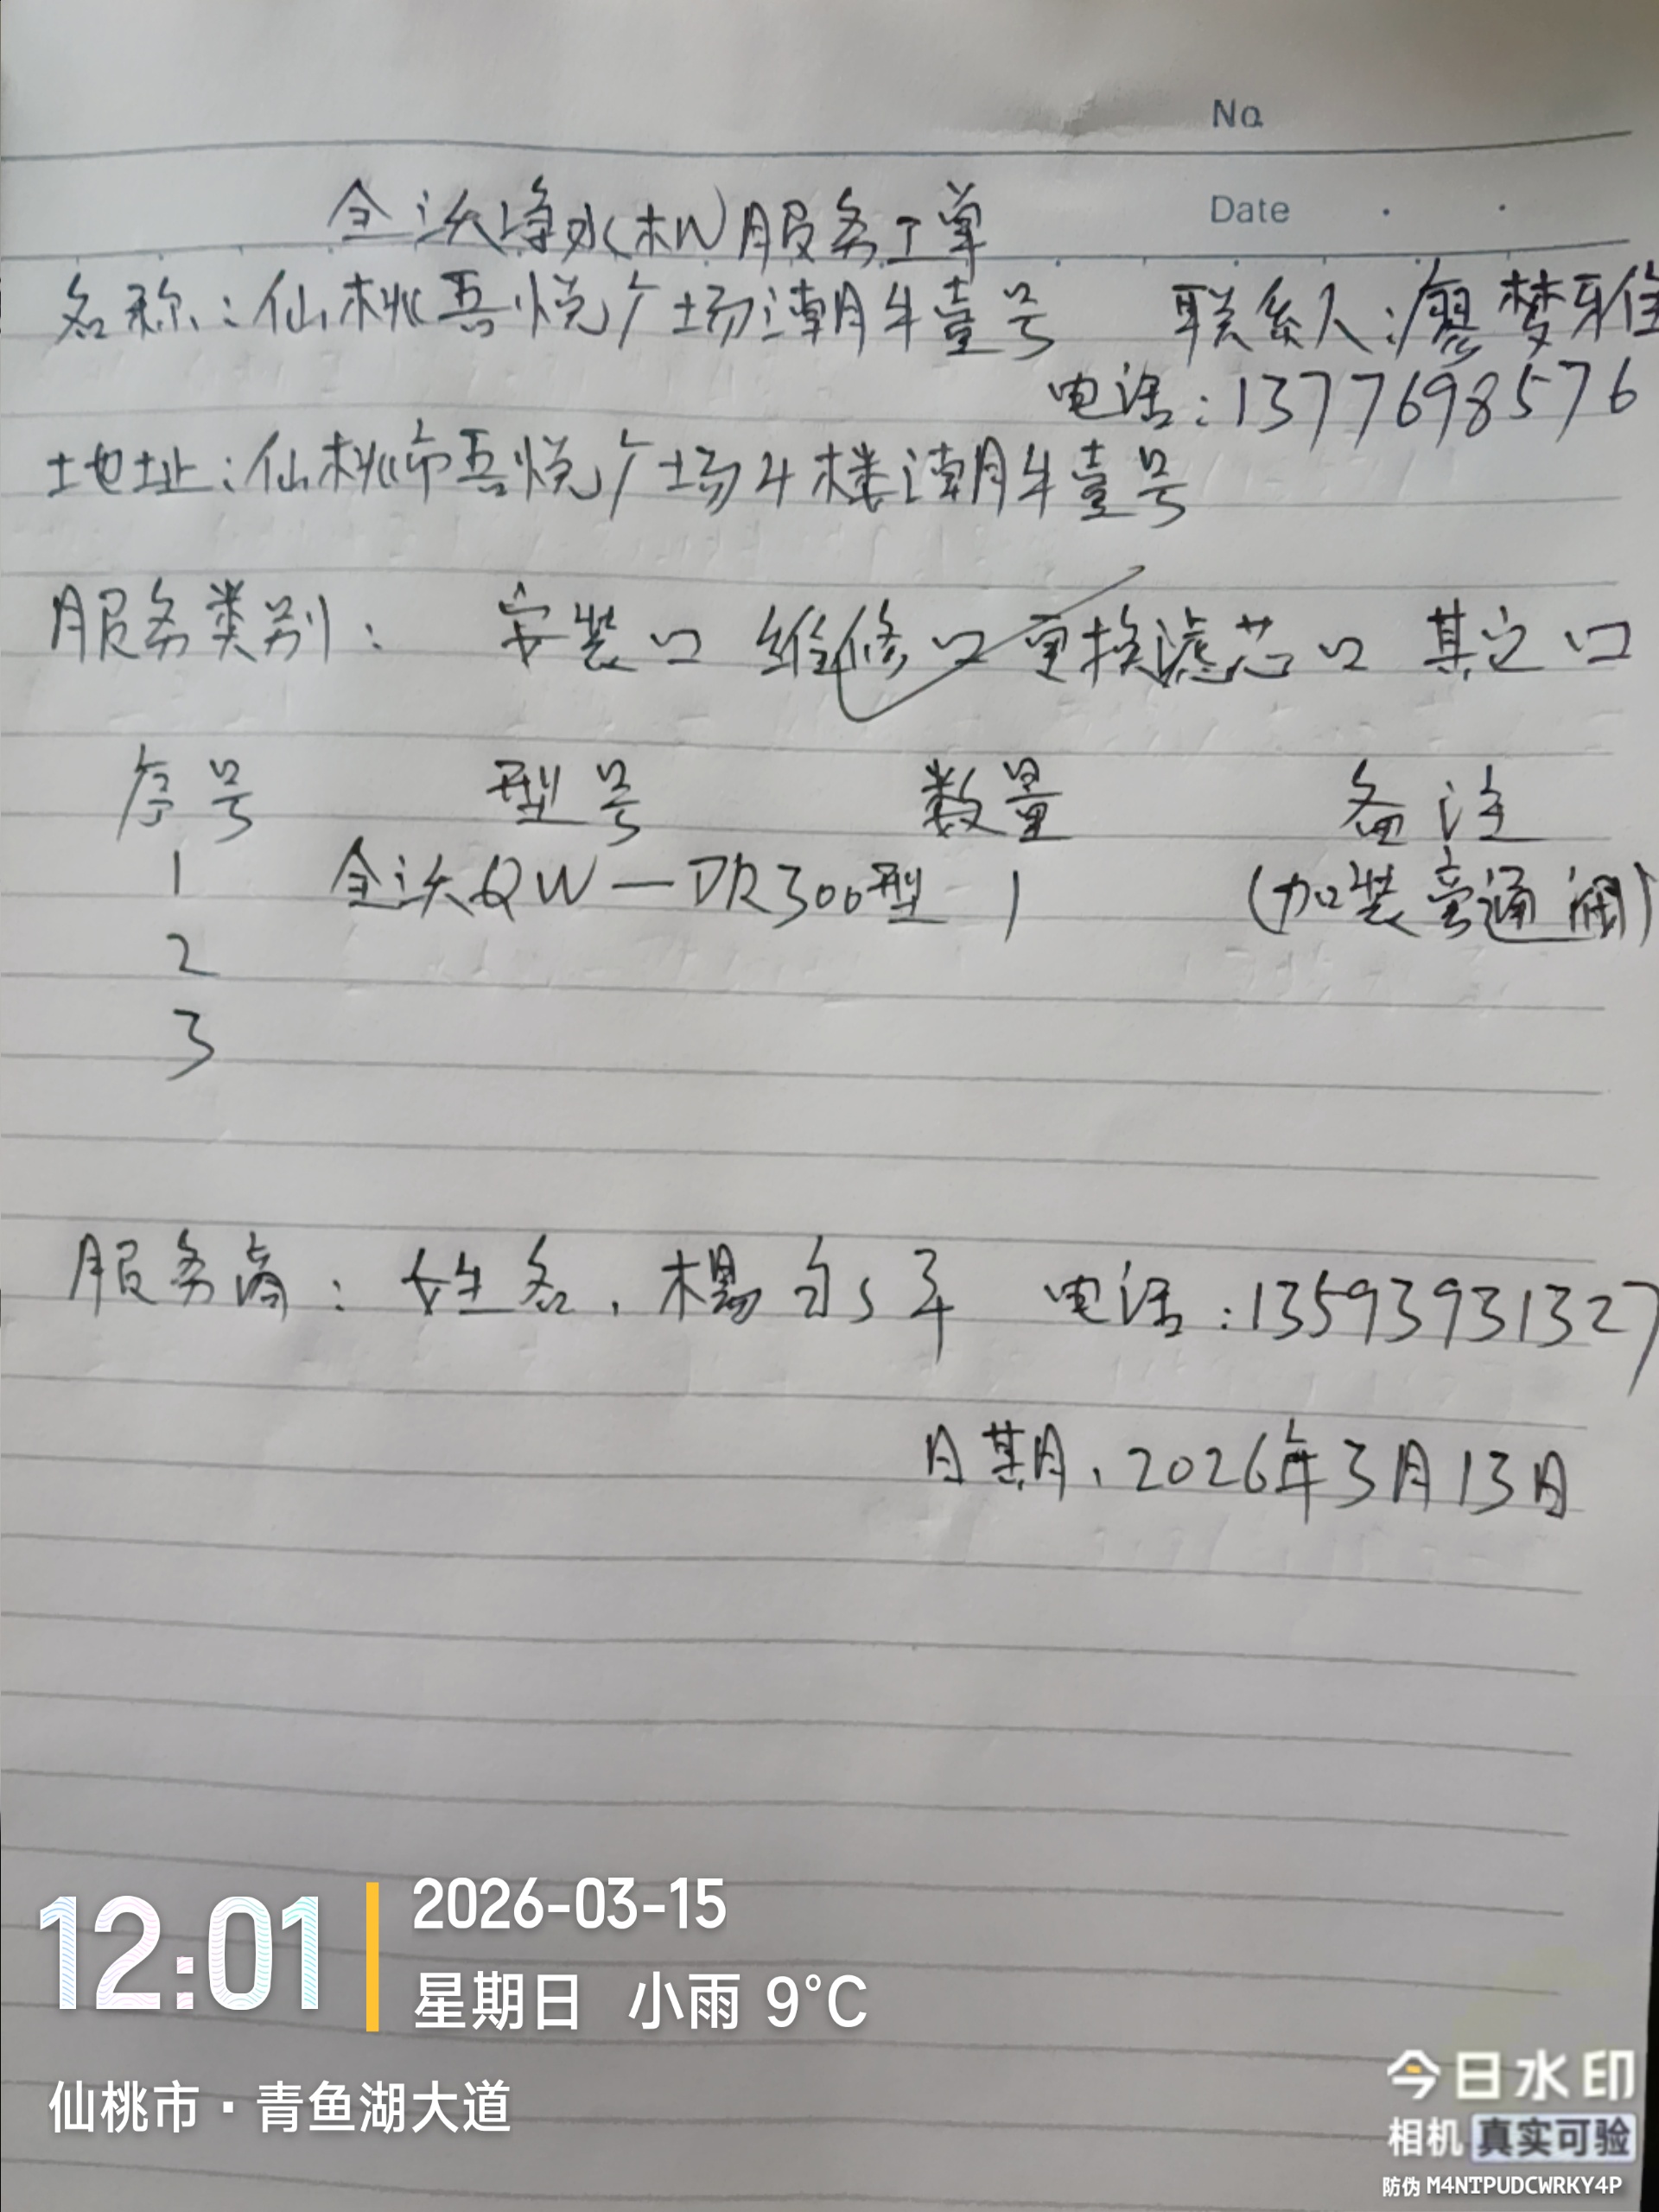 No.
Date
全沃净水(机)服务工单
名称:仙桃吾悦广场潮牛壹号 联系人:廖梦雅
电话:13777698576
地址:仙桃市吾悦广场4楼潮牛壹号
服务类别: 安装口 维修口 更换滤芯口 其它口
序号 型号 数量 备注
1 全沃QW—DR300型 1 (加装旁通阀)
2
3
服务商:姓名、杨 军 电话:13593931327
日期、2026年3月13日
12:01 2026-03-15
星期日 小雨 9°C
仙桃市·青鱼湖大道
今日水印
相机 真实可验
防伪 M4NTPUDCWRKY4P